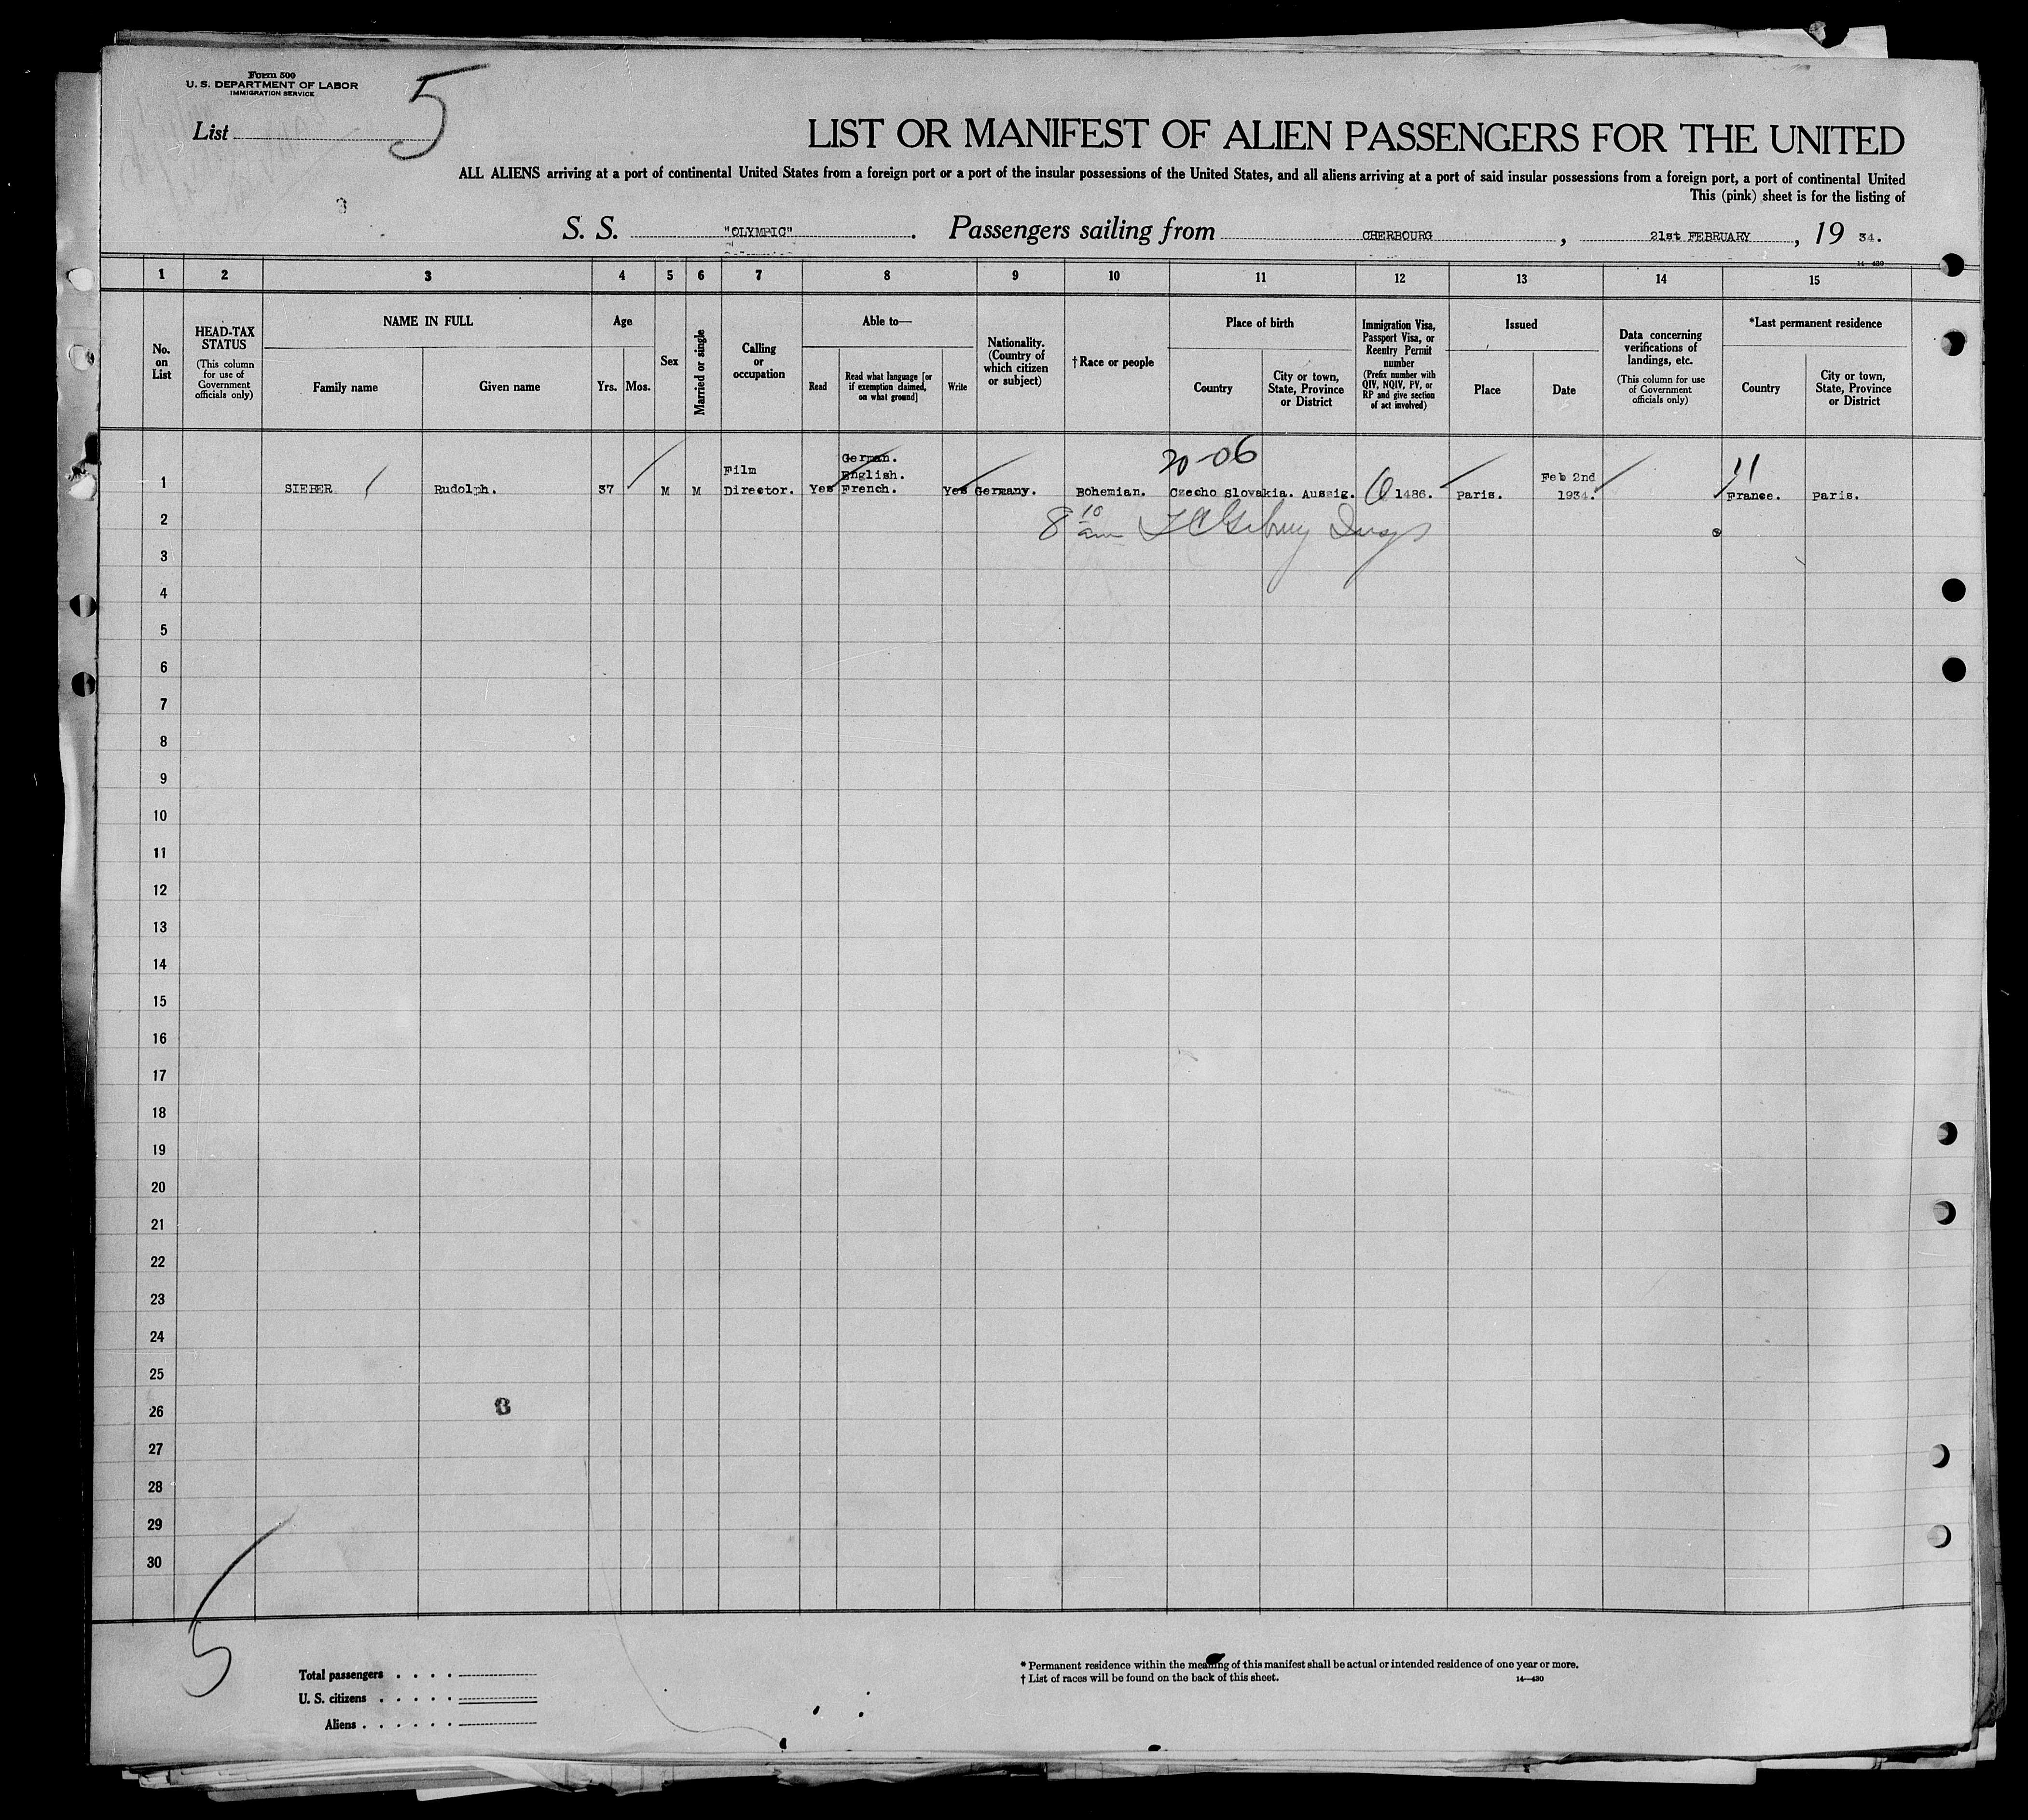 Form 500
U. S. DEPARTMENT OF LABOR
IMMIGRATION SERVICE
List 5
LIST OR MANIFEST OF ALIEN PASSENGERS FOR THE UNITED
ALL ALIENS arriving at a port of continental United States from a foreign port or a port of the insular possessions of the United States, and all aliens arriving at a port of said insular possessions from a foreign port, a port of continental United
This (pink) sheet is for the listing of
3
S. S. "OLYMPIC". Passengers sailing from CHERBOURG, 21st FEBRUARY, 19 34.
14—430
1 2 3 4 5 6 7 8 9 10 11 12 13 14 15
No. on List
HEAD-TAX STATUS
(This column for use of Government officials only)
NAME IN FULL
Family name
Given name
Age
Yrs. Mos.
Sex
Married or single
Calling or occupation
Able to—
Read
Read what language [or if exemption claimed, on what ground]
Write
Nationality. (Country of which citizen or subject)
†Race or people
Place of birth
Country
City or town, State, Province or District
Immigration Visa, Passport Visa, or Reentry Permit number
(Prefix number with QIV, NQIV, PV, or RP and give section of act involved)
Issued
Place
Date
Data concerning verifications of landings, etc.
(This column for use of Government officials only)
*Last permanent residence
Country
City or town, State, Province or District
20-06
11
1 SIEBER Rudolph. 37 M M Film Director. Yes German. English. French. Yes Germany. Bohemian. Czecho Slovakia. Aussig. 6 1486. Paris. Feb 2nd 1934. France. Paris.
8 10 am
2
3
4
5
6
7
8
9
10
11
12
13
14
15
16
17
18
19
20
21
22
23
24
25
26
3
27
28
29
30
5
Total passengers . . . .
U. S. citizens . . . . .
Aliens . . . . . .
* Permanent residence within the meaning of this manifest shall be actual or intended residence of one year or more.
† List of races will be found on the back of this sheet.
14—430